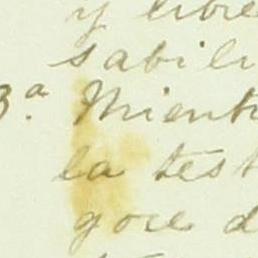 y libre
sabili
3ª. Mient
la test
goce d